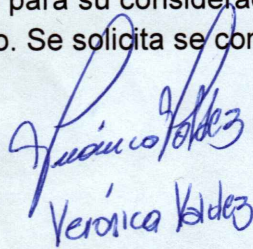 para su considerac
o. Se solicita se con
Verónica Valdez
Verónica Valdez